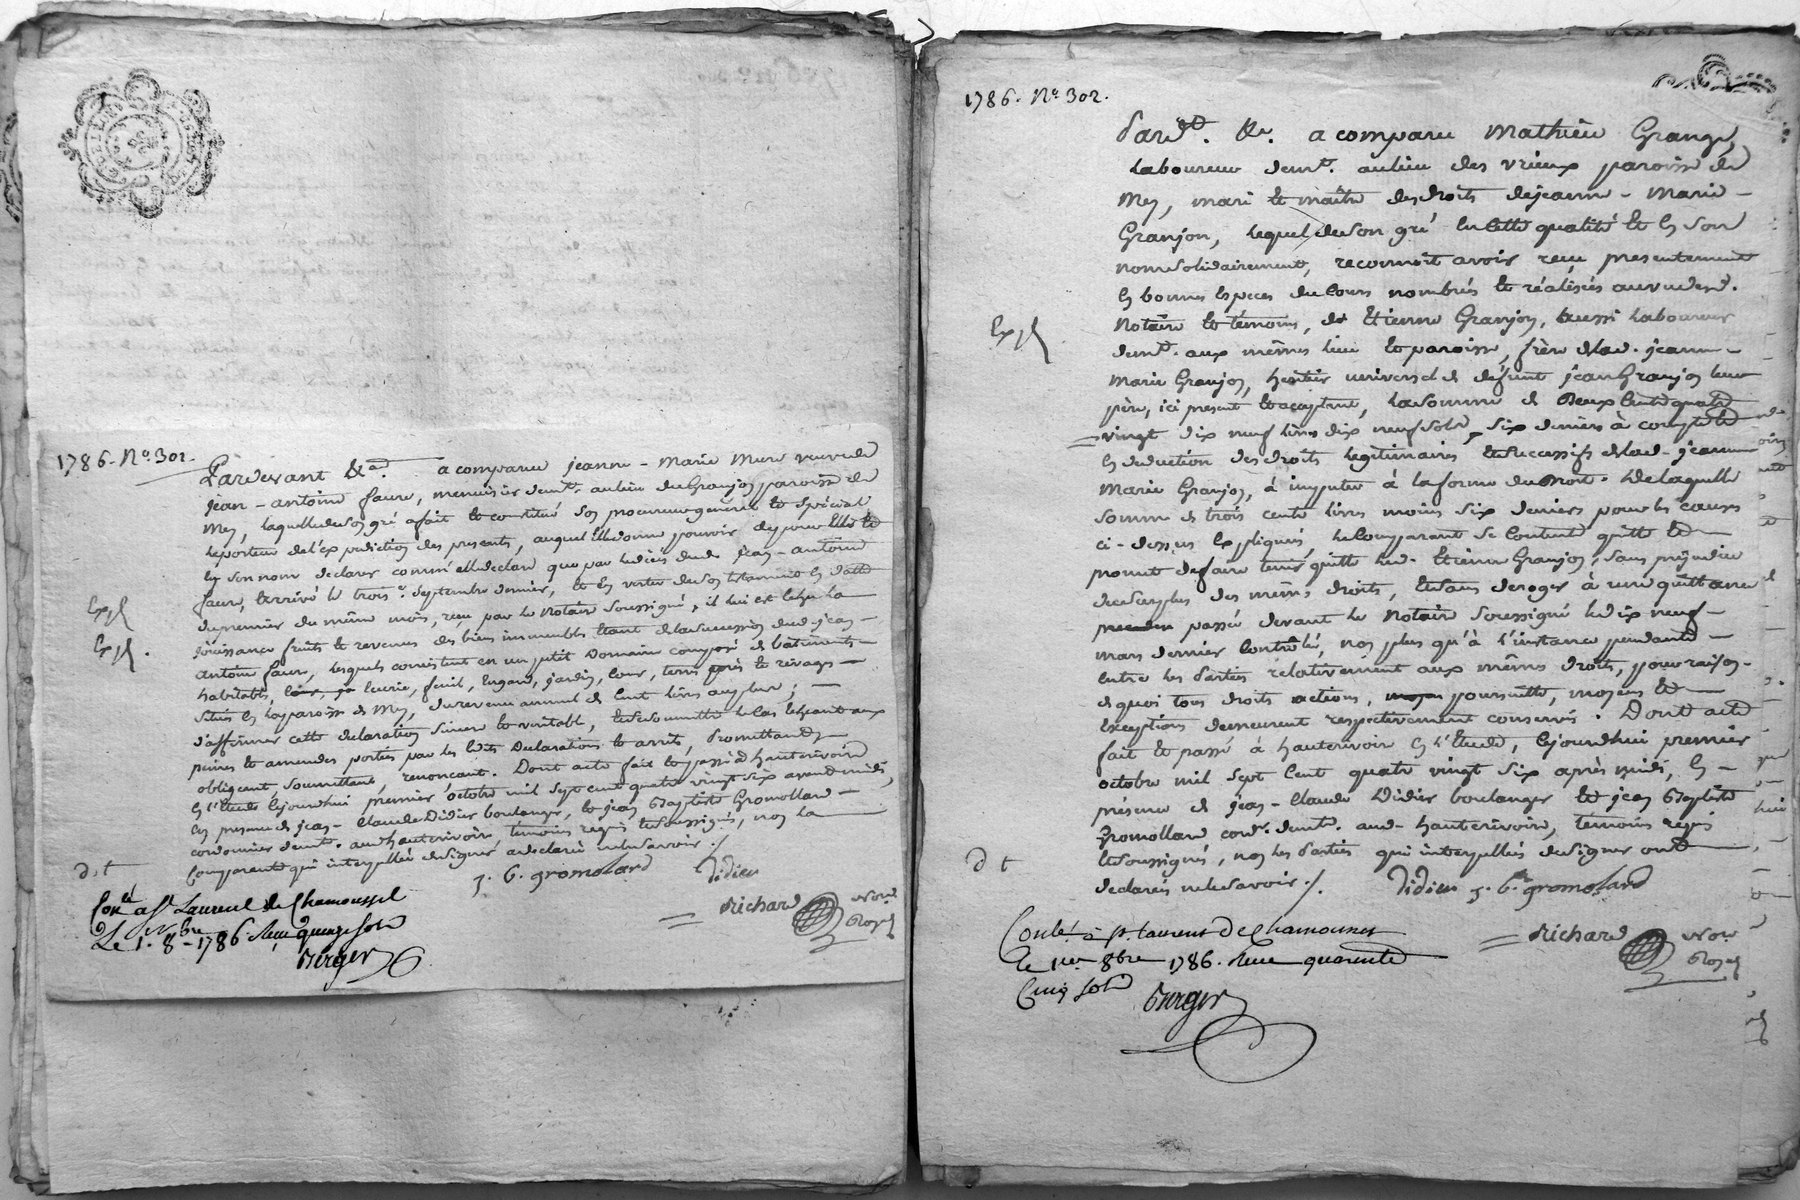 1786. N.° 301.
Pardevant &a. a comparu jeanne-Marie Mure veuve de
jean-antoine faure, menuisier demt. au lieu du Granjon paroisse de
Mey, laquelle de son gré a fait et constitué son procureur général et spécial
le porteur de l'expédition des presentes, auquel elle donne pouvoir de pour elle et
en son nom declarer comm'elle declare que par le décès dud. jean-antoine
faure, arrivé le trois septembre dernier, et en vertu de son testament en datte
du premier du même mois, reçu par le Notaire soussigné, il lui est échu la
jouissance fruits et revenus des biens immeubles étant de la succession dud. jean-
antoine faure, lesquels consistent en un petit Domaine composé de batiments
habitables, écurie, fenil, hugard, jardin, cour, terres, près et
situés en lad. paroisse de Mey, du revenu annuel de cent livres au plus;
d'affirmer cette declaration sincere et veritable, et de se soumettre le cas échéant aux
peines et amendes portées par les Edits Declarations et arrêts, Promettant,
obligeant, soumettant, renonçant. Dont acte fait et passé à hauterivoire
en l'Etude cejourdhui premier octobre mil sept cent quatre vingt six avant midi,
en presence de jean-Claude Didier boulanger, et jean Baptiste Gromollard
cordonnier demt. aud. hauterivoire temoins requis et soussignés, non la
comparante qui interpellée de signer a declaré ne le savoir ./.
Exp
Exp.
d. t
j. b. gromolard Didier
Richard Not. Royal
Conlé à St Laurent de Chamousset
Le 1. 8bre 1786. Reçu quinze sols
Berger
1786. N.° 302.
Pardt. &a. a comparu Mathieu Grange,
Laboureur demt. au lieu des vrieux paroisse de
Mey, mari et maître des droits de jeanne-Marie
Granjon, lequel de son gré en cette qualité et en son
nom solidairement, reconnoit avoir reçu presentement
en bonnes especes du cours nombrés et réalisées au vu desd.
Notaire et témoins, de Etienne Granjon, aussi Laboureur
demt. aux mêmes lieu et paroisse, frère de lad. jeanne-
Marie Granjon, héritier universel de défunt jean Granjon leur
père, ici present et acceptant, la somme de Deux cents quatre
vingt dix neuf livres dix neuf sols, six deniers à compte et
en deduction des droits legitimaires et successifs de lad. jeanne
Marie Granjon, à imputer à la forme du droit. De laquelle
somme de trois cents livres moins six deniers pour les causes
ci-dessus expliquées, le comparant se contente quitte et
promet de faire tenir quitte led. Etienne Granjon, sans préjudice
du surplus des mêmes droits, et sans deroger à une quittance
passée devant le Notaire soussigné le dix neuf
mars dernier Contrôlé, non plus qu'à l'instance pendante
entre les Parties relativement aux mêmes droits, pour raison
de quoi tous droits actions, poursuittes, moyens et
exceptions demeurent respectivement conservés. Dont acte
fait et passé à hauterivoire en l'Etude, cejourdhui premier
octobre mil sept cent quatre vingt six après midi, en
présence de jean-Claude Didier boulanger et jean Baptiste
gromollard cord.r demt. aud. hauterivoire, temoins requis
et soussignés, non les Parties qui interpellées de signer ont
declarés ne le savoir ./. Didier j. b. gromolard
Exp
d t
Richard Not. Royal
Conlé à St. Laurent de Chamousset
Le 1er 8bre 1786. Reçu quarente
Cinq sols Berger